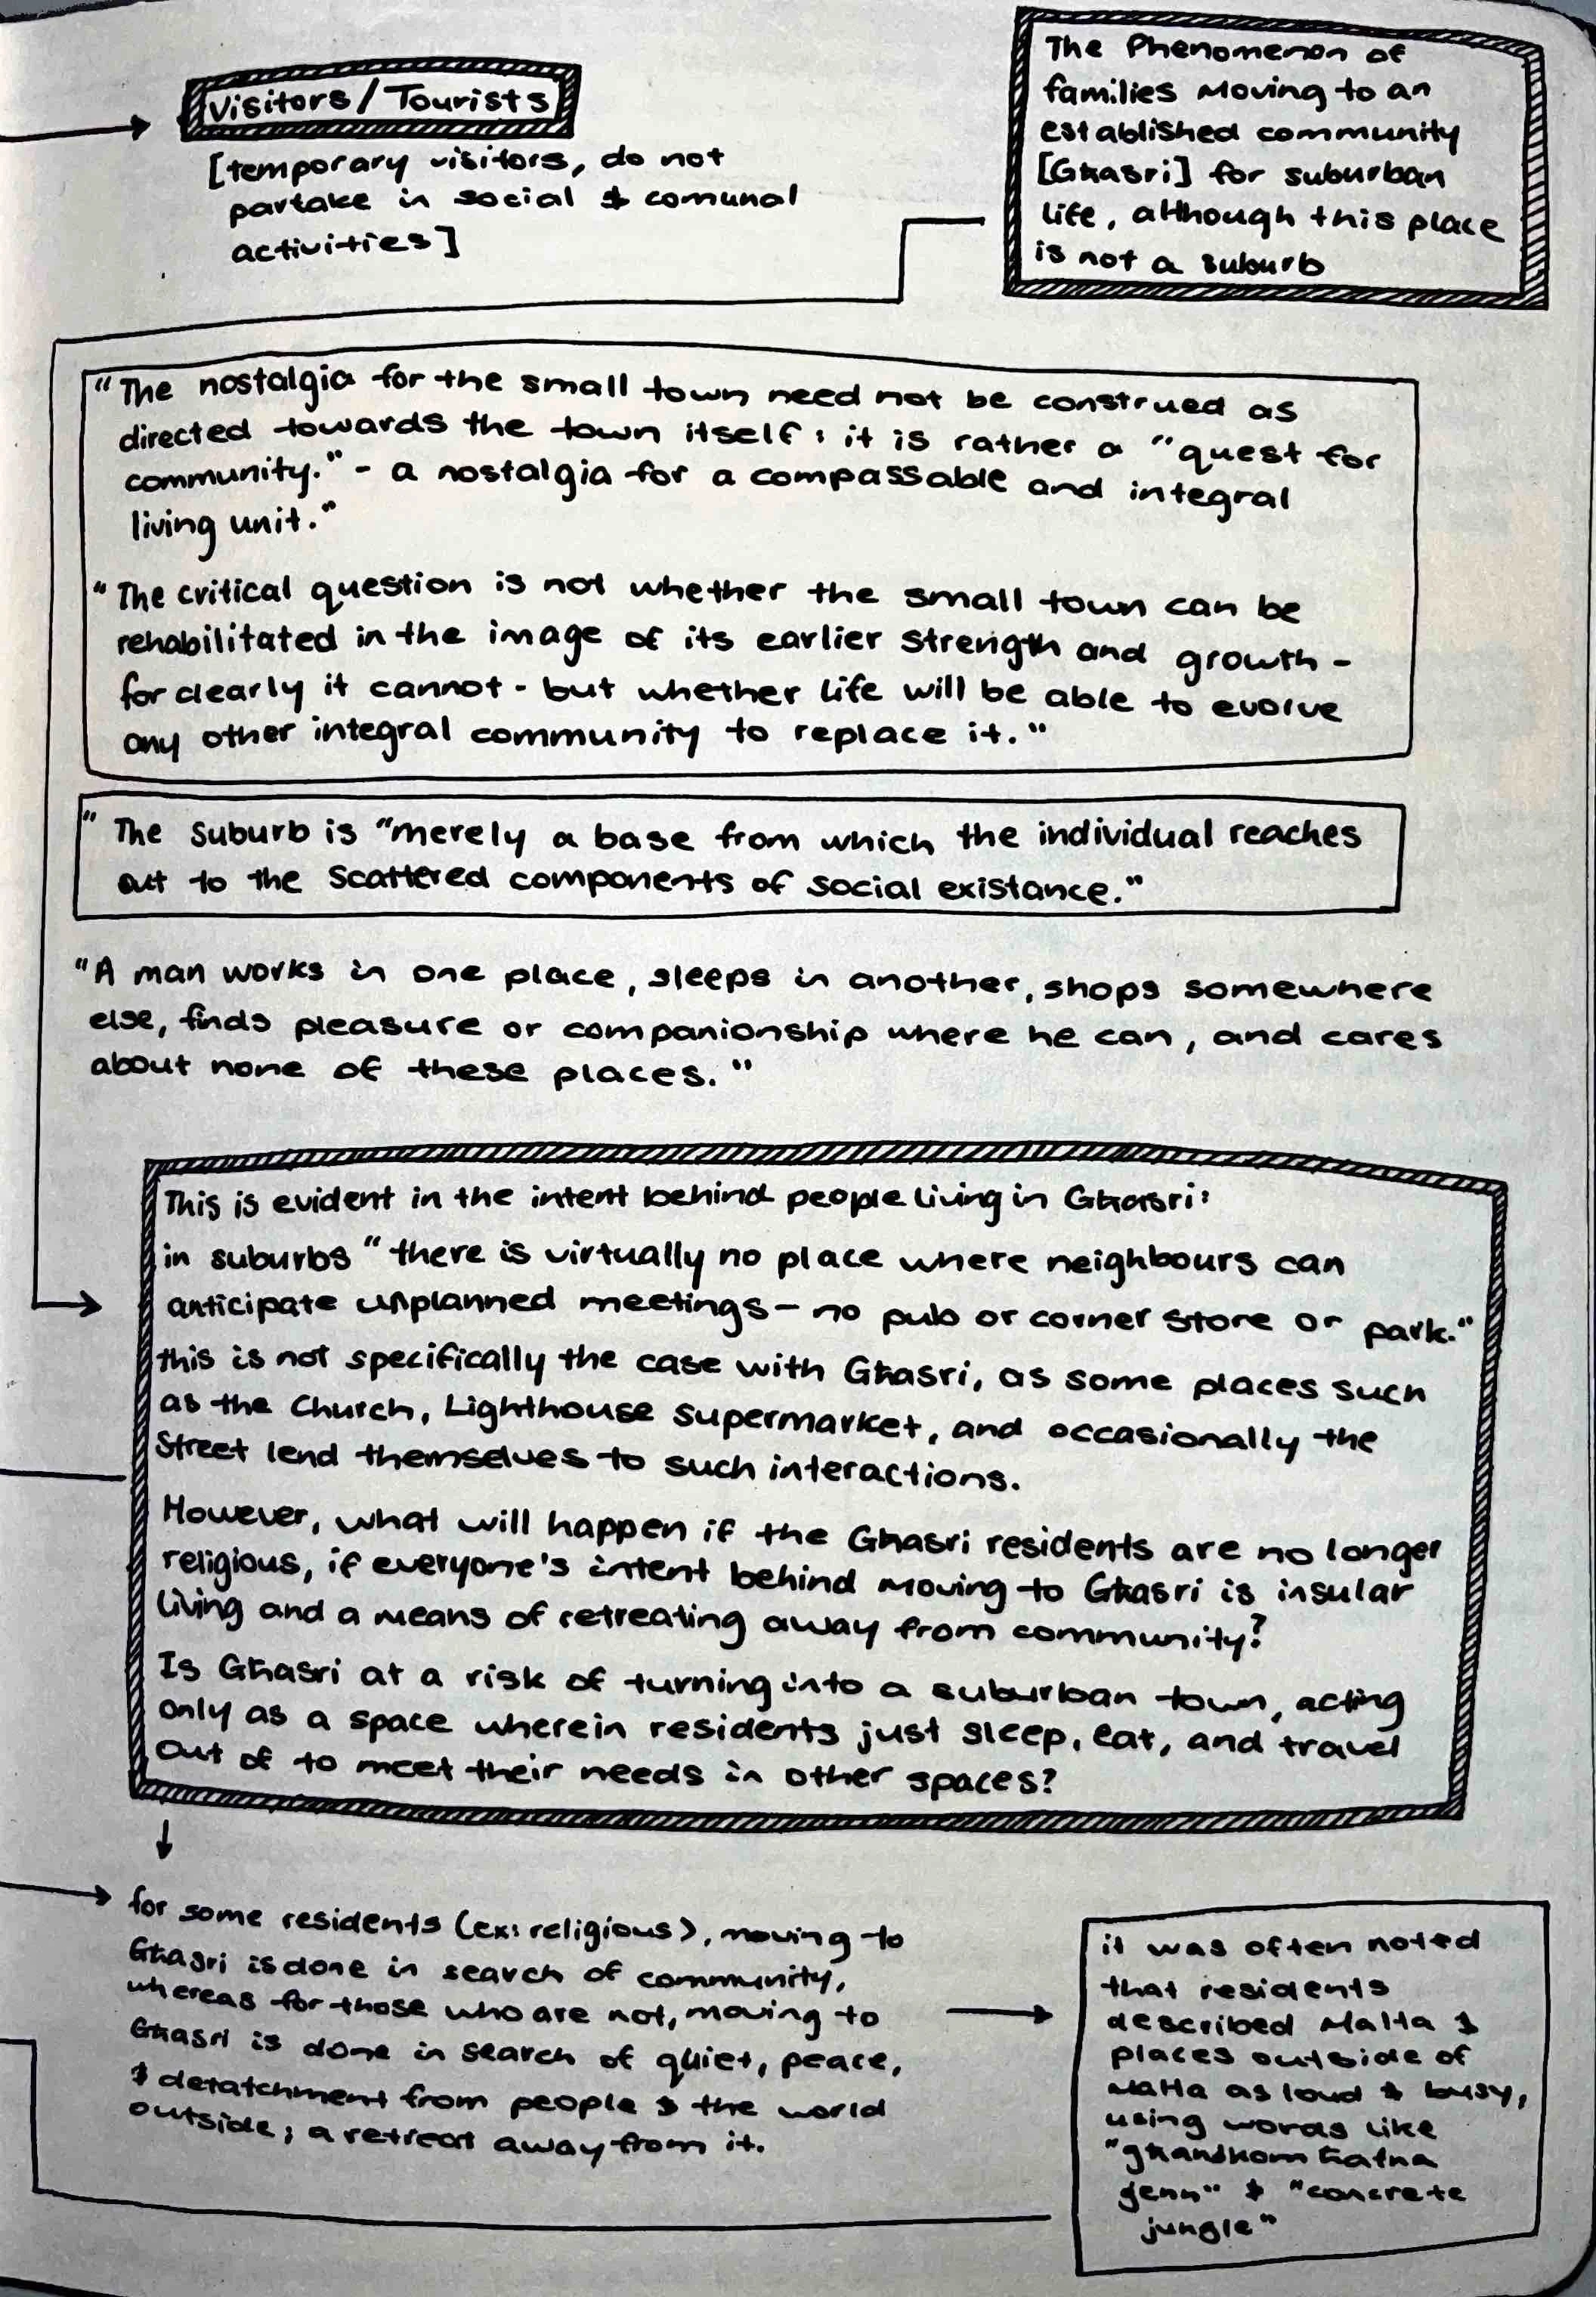 Visitors/Tourists
[temporary visitors, do not
partake in social & comunal
activities]
The Phenomenon of
families moving to an
established community
[Għasri] for suburban
life, although this place
is not a suburb
"The nostalgia for the small town need not be construed as
directed towards the town itself: it is rather a "quest for
community." - a nostalgia for a compassable and integral
living unit."
"The critical question is not whether the small town can be
rehabilitated in the image of its earlier strength and growth -
for clearly it cannot - but whether life will be able to evolve
any other integral community to replace it."
"The suburb is "merely a base from which the individual reaches
out to the scattered components of social existance."
"A man works in one place, sleeps in another, shops somewhere
else, finds pleasure or companionship where he can, and cares
about none of these places."
This is evident in the intent behind people living in Għasri:
in suburbs "there is virtually no place where neighbours can
anticipate unplanned meetings - no pub or corner store or park."
this is not specifically the case with Għasri, as some places such
as the Church, Lighthouse supermarket, and occasionally the
street lend themselves to such interactions.
However, what will happen if the Għasri residents are no longer
religious, if everyone's intent behind moving to Għasri is insular
living and a means of retreating away from community?
Is Għasri at a risk of turning into a suburban town, acting
only as a space wherein residents just sleep, eat, and travel
out of to meet their needs in other spaces?
for some residents (ex: religious), moving to
Għasri is done in search of community,
whereas for those who are not, moving to
Għasri is done in search of quiet, peace,
& detatchment from people & the world
outside; a retreat away from it.
it was often noted
that residents
described Malta &
places outside of
Malta as loud & busy,
using words like
"għandkom ħafna
ġenn" & "concrete
jungle"